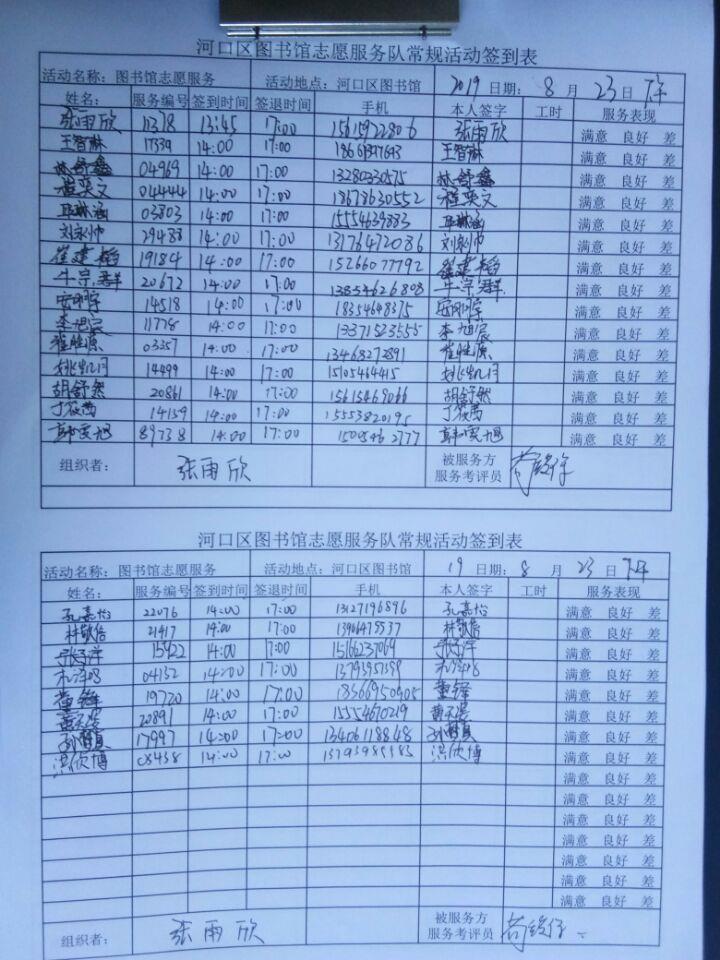 河口区图书馆志愿服务队常规活动签到表
活动名称：图书馆志愿服务 活动地点：河口区图书馆 2019 日期：8 月 23 日 下午
姓名： 服务编号 签到时间 签退时间 手机 本人签字 工时 服务表现
张雨欣 11378 13:45 17:00 15615922806 张雨欣 满意 良好 差
王智麟 17339 14:00 17:00 王智麟 满意 良好 差
林舒鑫 04969 14:00 17:00 13280330575 林舒鑫 满意 良好 差
程奕文 04444 14:00 17:00 18678630552 程奕文 满意 良好 差
03803 14:00 17:00 15554639883 满意 良好 差
刘永帅 29488 14:00 17:00 13176472086 刘永帅 满意 良好 差
崔建韬 19184 14:00 17:00 15266077792 崔建韬 满意 良好 差
牛宗群 20672 14:00 17:00 13854626808 牛宗群 满意 良好 差
安明宇 14518 14:00 17:00 18354648375 安明宇 满意 良好 差
李旭宸 11778 14:00 17:00 13371523555 李旭宸 满意 良好 差
崔胜源 03357 14:00 17:00 13468272891 崔胜源 满意 良好 差
姚凯闩 14499 14:00 17:00 15105464415 姚凯闩 满意 良好 差
胡舒然 20861 14:00 17:00 15615469066 胡舒然 满意 良好 差
丁筱茜 14159 14:00 17:00 15553820195 丁筱茜 满意 良好 差
郭奕旭 89738 14:00 17:00 15005462777 郭奕旭 满意 良好 差
组织者： 张雨欣 被服务方
服务考评员
河口区图书馆志愿服务队常规活动签到表
活动名称：图书馆志愿服务 活动地点：河口区图书馆 19 日期：8 月 23 日 下午
姓名： 服务编号 签到时间 签退时间 手机 本人签字 工时 服务表现
孔嘉怡 22076 14:00 17:00 13127196896 孔嘉怡 满意 良好 差
林敬信 21417 14:00 17:00 13906475537 林敬信 满意 良好 差
张子洋 15922 14:00 17:00 15166237069 张子洋 满意 良好 差
04152 14:00 17:00 满意 良好 差
董锋 19720 14:00 17:00 18366950905 董锋 满意 良好 差
20891 14:00 17:00 15554670219 满意 良好 差
17997 14:00 17:00 13406118848 满意 良好 差
洪欣博 03438 14:00 17:00 洪欣博 满意 良好 差
满意 良好 差
满意 良好 差
满意 良好 差
满意 良好 差
满意 良好 差
满意 良好 差
满意 良好 差
组织者： 张雨欣 被服务方
服务考评员